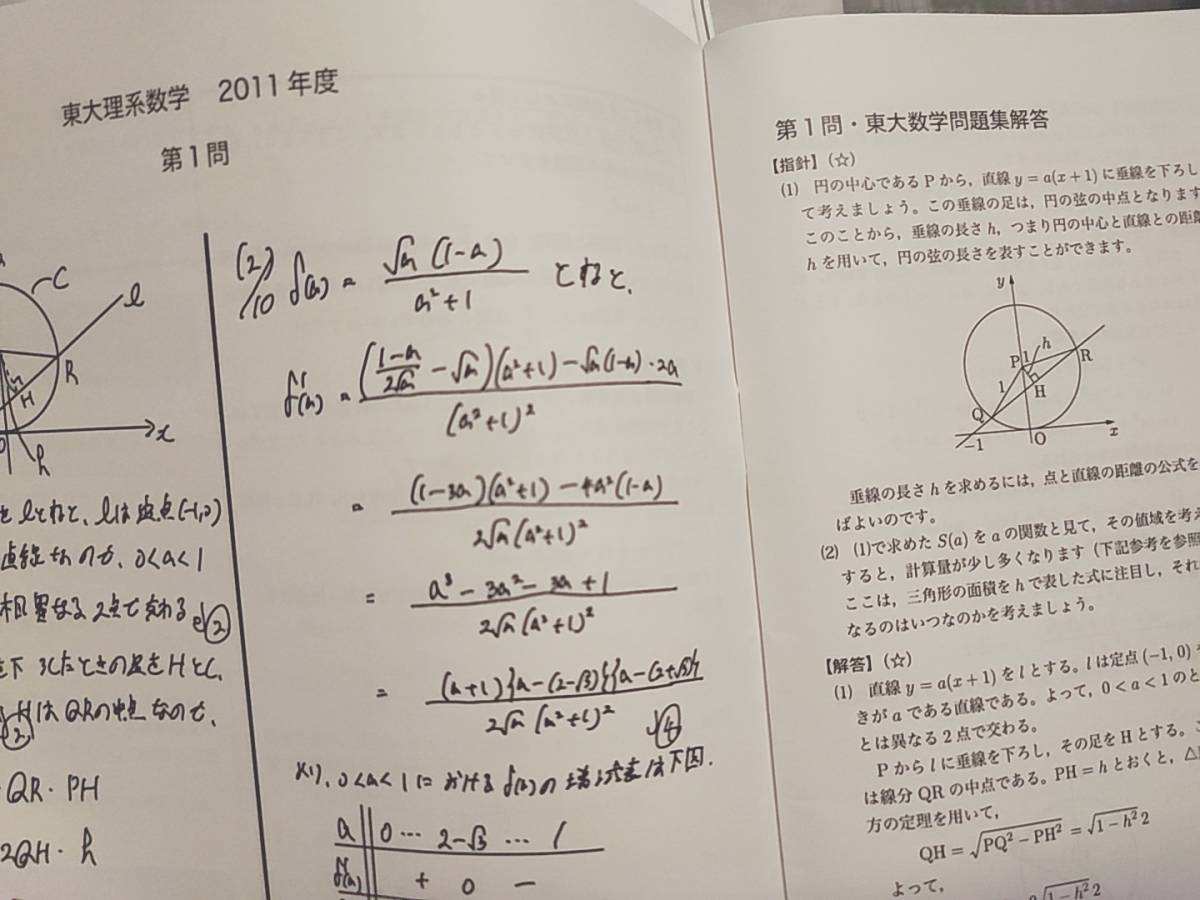 東大理系数学 2011年度
第1問
C
l
R
H
x
h
をlとおくと、lは定点(-1,0)
直線なので、0<a<1
相異なる2点で交わる
②
下ろしたときの足をHとし、
HはQRの中点なので、
②
QR・PH
2QH・h
(2)/10 f(a) = \frac{\sqrt{a}(1-a)}{a²+1} とおくと、
f'(a) = \frac{(\frac{1-a}{2\sqrt{a}} - \sqrt{a})(a²+1) - \sqrt{a}(1-a)・2a}{(a²+1)²}
= \frac{(1-3a)(a²+1) - 4a²(1-a)}{2\sqrt{a}(a²+1)²}
= \frac{a³-3a²-3a+1}{2\sqrt{a}(a²+1)²}
= \frac{(a+1){a-(2-√3)}{a-(2+√3)}}{2\sqrt{a}(a²+1)²}
④
より、0<a<1におけるf(a)の増減表は下図.
a 0 … 2-√3 … 1
f'(a) + 0 −
第1問・東大数学問題集解答
【指針】(☆)
(1) 円の中心であるPから，直線 y = a(x+1) に垂線を下ろし
て考えましょう。この垂線の足は，円の弦の中点となります
このことから，垂線の長さ h，つまり円の中心と直線との距離
h を用いて，円の弦の長さを表すことができます。
y
P
1
h
R
1
H
Q
−1
O
x
垂線の長さ h を求めるには，点と直線の距離の公式を
ばよいのです。
(2) (1)で求めた S(a) を a の関数と見て，その値域を考え
すると，計算量が少し多くなります（下記参考を参照
ここは，三角形の面積を h で表した式に注目し，それ
なるのはいつなのかを考えましょう。
【解答】(☆)
(1) 直線 y = a(x+1) を l とする。l は定点 (−1, 0)
きが a である直線である。よって，0 < a < 1 のと
とは異なる2点で交わる。
P から l に垂線を下ろし，その足を H とする。こ
は線分 QR の中点である。PH = h とおくと，△
方の定理を用いて，
QH = \sqrt{PQ² − PH²} = \sqrt{1 − h²}2
よって，
\sqrt{1 − h²}2